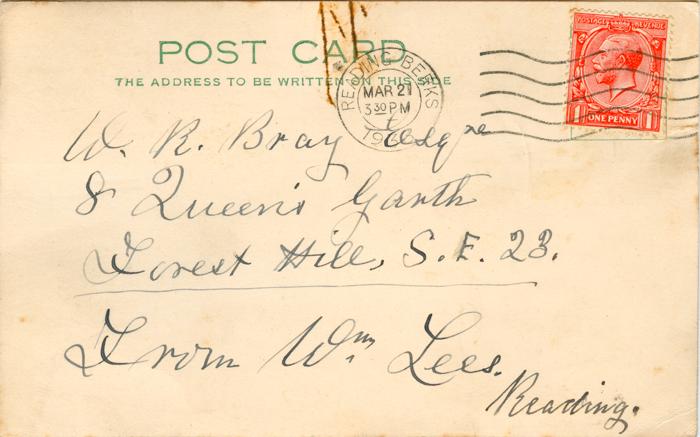 POST CARD
THE ADDRESS TO BE WRITTEN ON THIS SIDE
READING BERKS
MAR 21
3 30 PM
POSTAGE REVENUE
1 ONE PENNY 1
W. R. Bray Esqre
8 Queen's Garth
Forest Hill, S.E. 23.
From Wm Lees.
Reading.